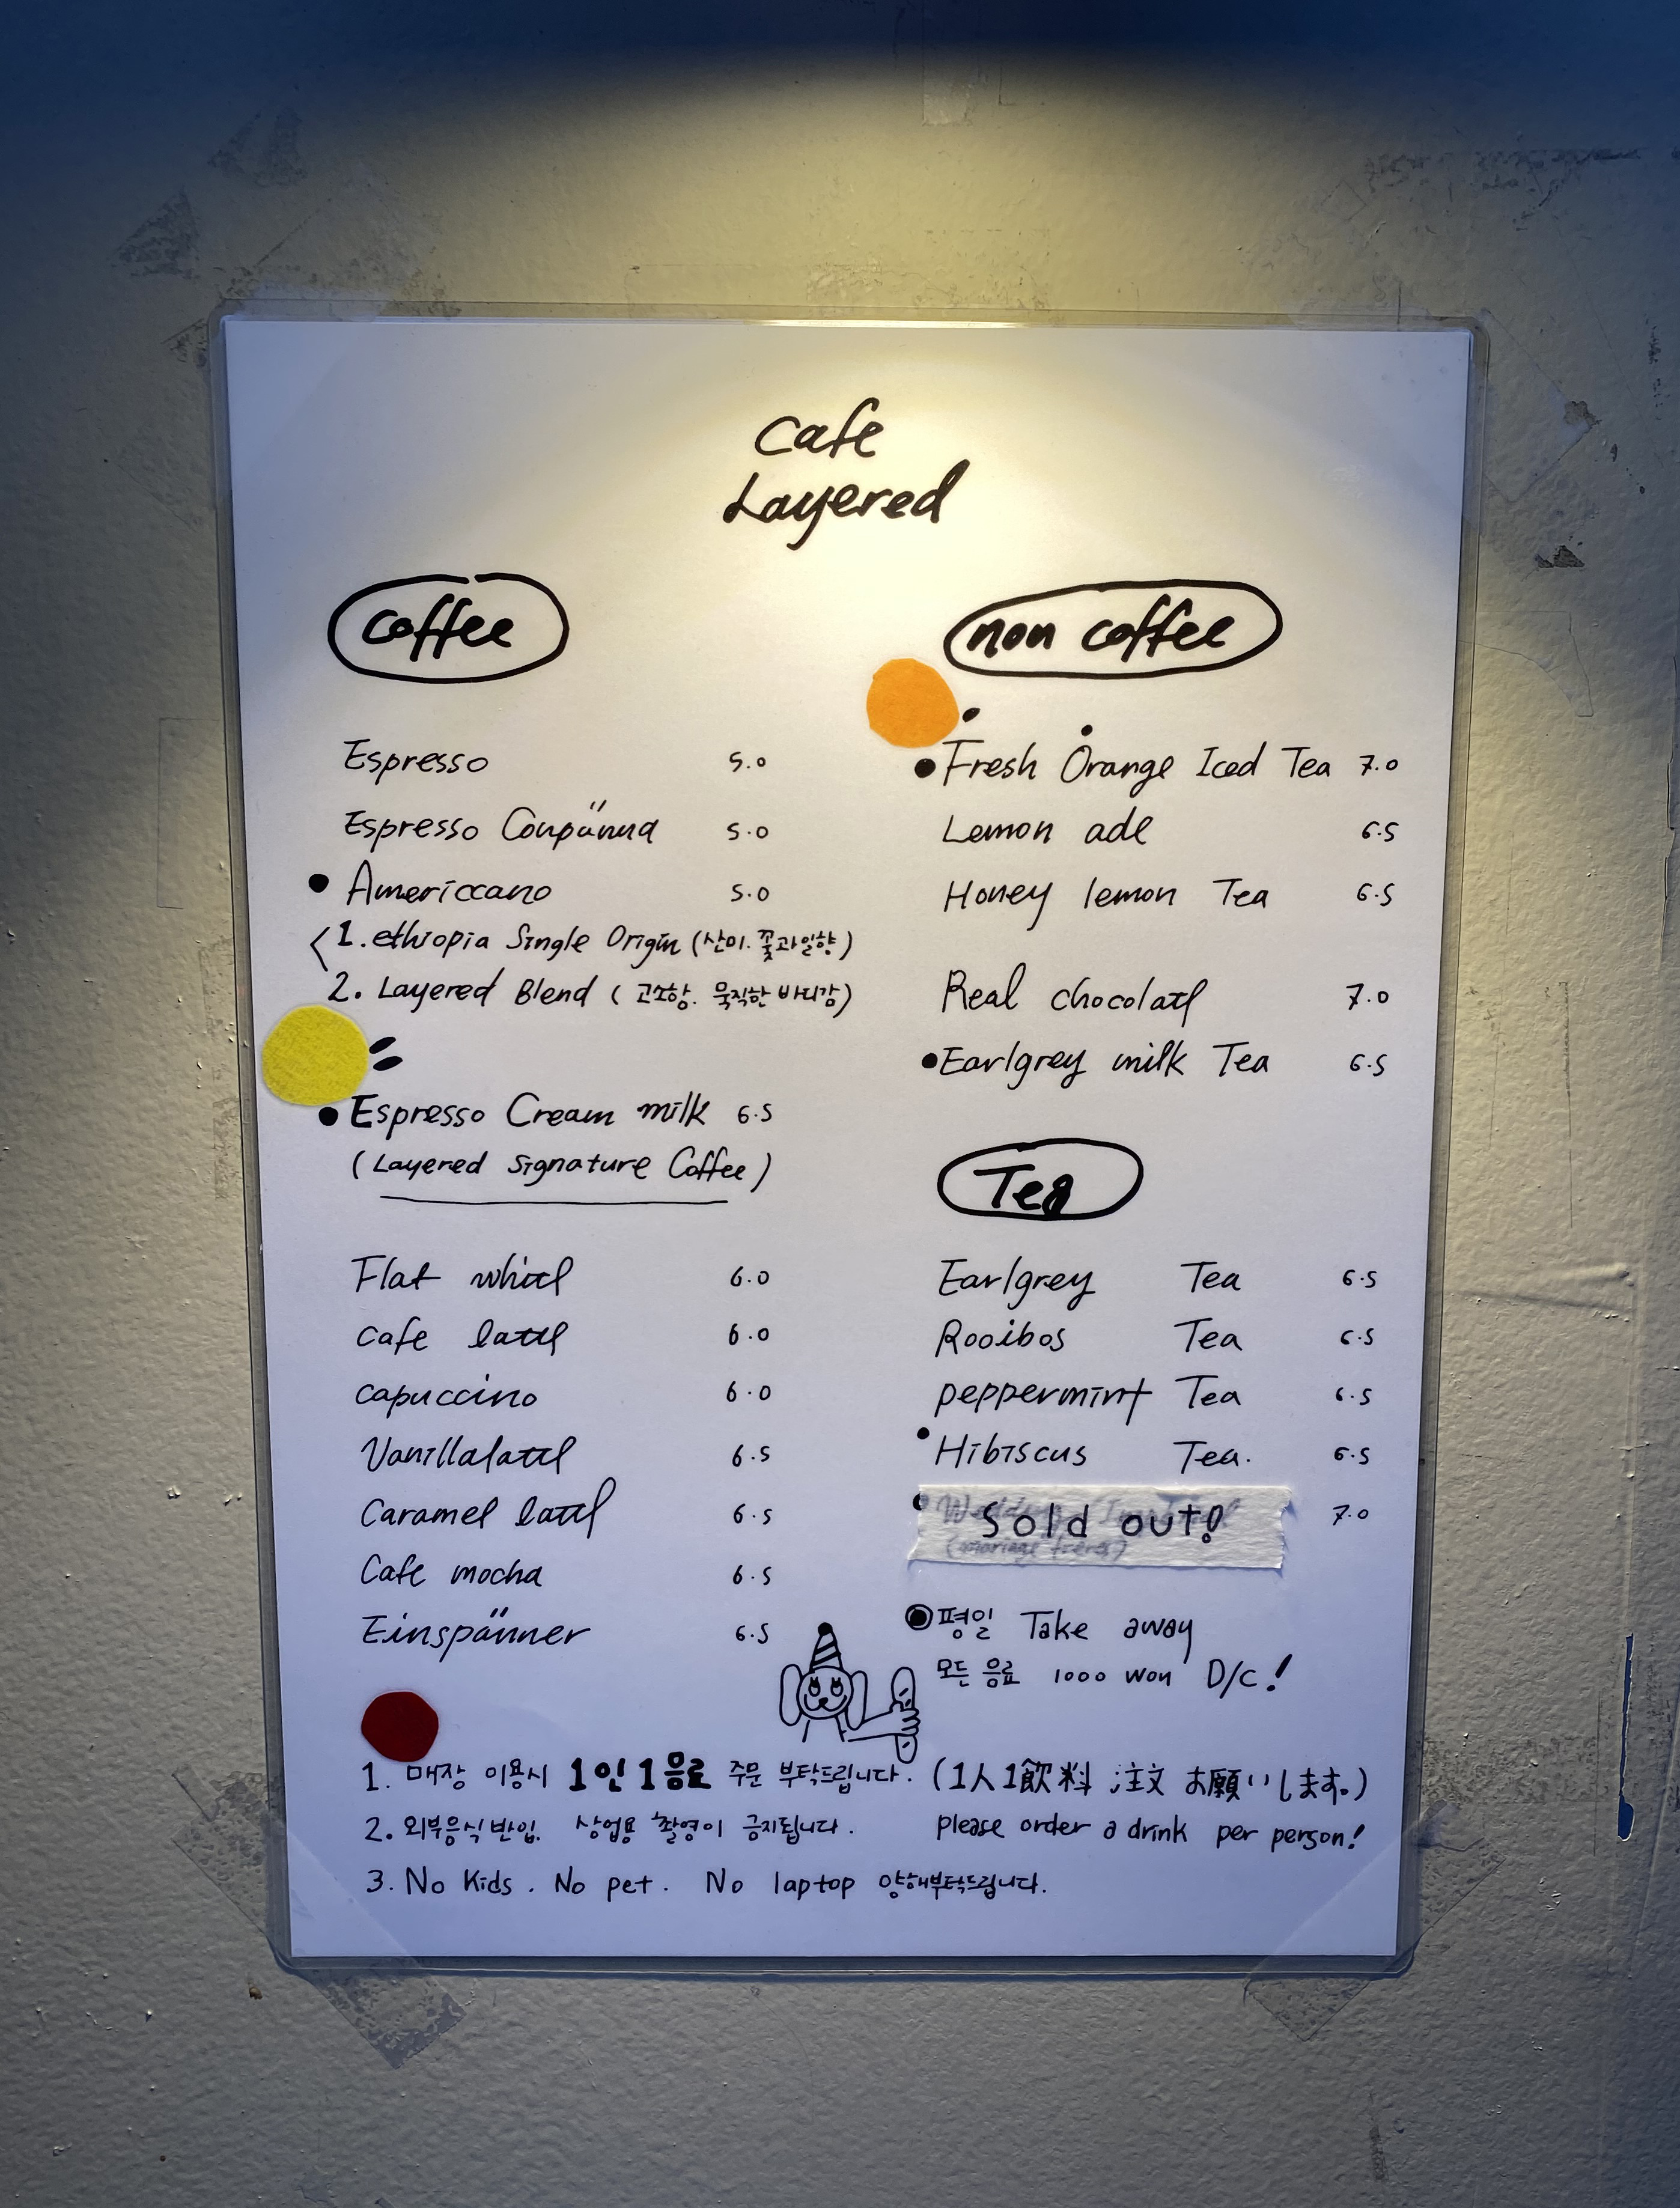 Cafe
Layered
Coffee
Espresso 5.0
Espresso Coupänna 5.0
Americcano 5.0
1. ethiopia Single Origin (산미. 꽃과일향)
2. Layered Blend (고소함. 묵직한 바디감)
Espresso Cream milk 6.5
(Layered Signature Coffee)
Flat white 6.0
Cafe latte 6.0
Capuccino 6.0
Vanillalatte 6.5
Caramel latte 6.5
Cafe mocha 6.5
Einspänner 6.5
non coffee
Fresh Orange Iced Tea 7.0
Lemon ade 6.5
Honey lemon Tea 6.5
Real chocolate 7.0
Earlgrey milk Tea 6.5
Tea
Earlgrey Tea 6.5
Rooibos Tea 6.5
peppermint Tea 6.5
Hibiscus Tea. 6.5
Sold out! 7.0
(mariage frères)
평일 Take away
모든 음료 1000 won D/C!
1. 매장 이용시 1인 1음료 주문 부탁드립니다. (1人1飲料 注文 お願いします。)
2. 외부음식 반입. 상업용 촬영이 금지됩니다. please order a drink per person!
3. No Kids. No pet. No laptop 양해부탁드립니다.